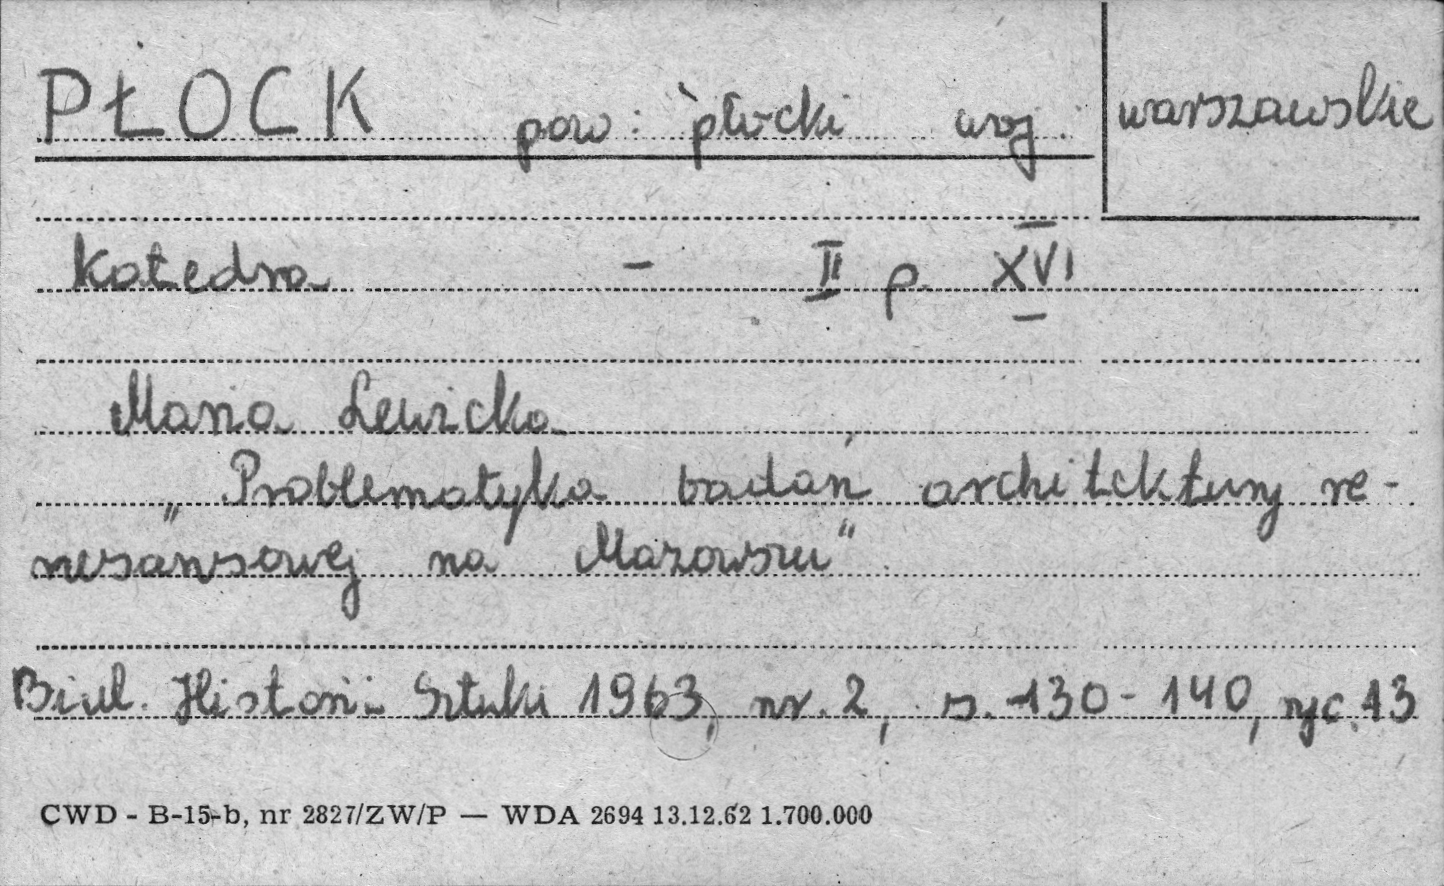 PŁOCK pow: płocki woj. warszawskie
Katedra - II p. XVI
Maria Lewicka
„Problematyka badań architektury re-
nesansowej na Mazowszu“
Biul. Historii Sztuki 1963, nr. 2, s. 130-140, ryc. 13
CWD - B-15-b, nr 2827/ZW/P — WDA 2694 13.12.62 1.700.000